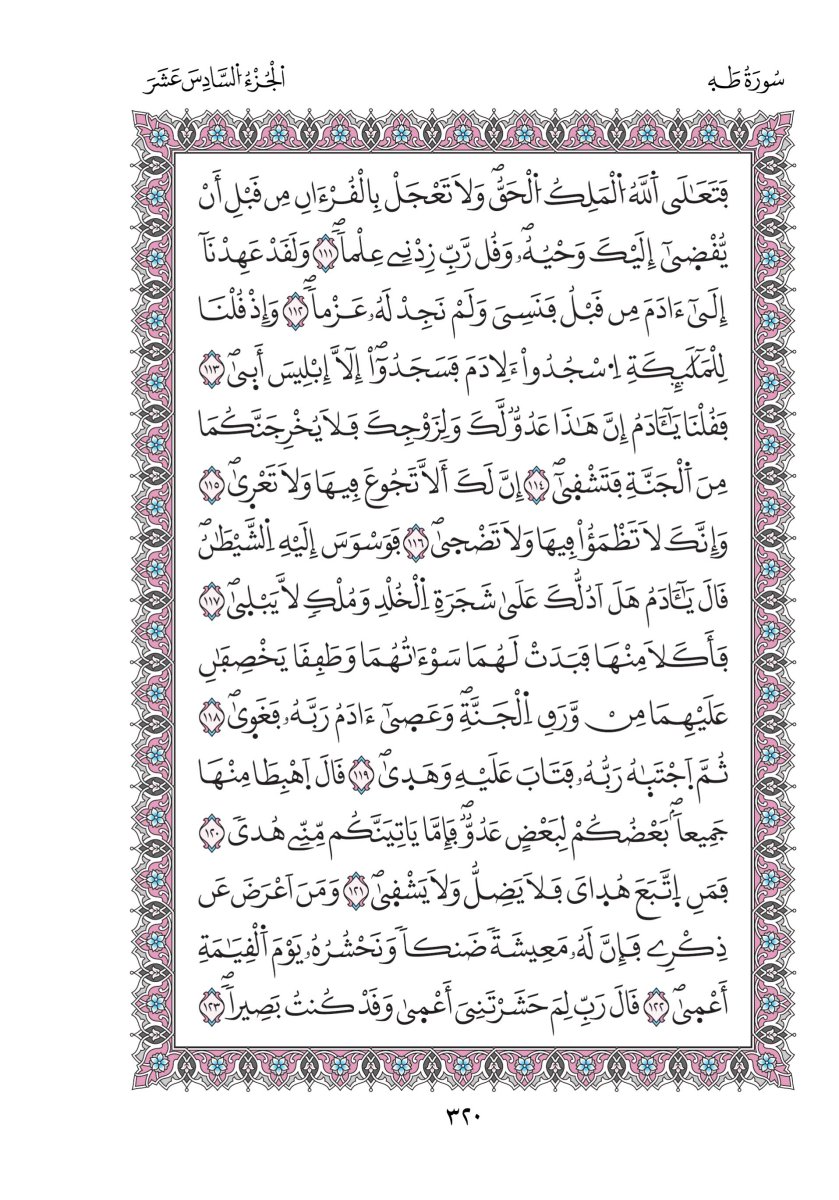 سُورَةُ طَهِ
اَلْجُزْءُ اُلسَّادِسَ عَشَرَ
فَتَعَٰلَى اَ۬للَّهُ اُ۬لْمَلِكُ اُ۬لْحَقُّۖ وَلَا تَعْجَلْ بِالْقُرْءَانِ مِن قَبْلِ أَنْ
يُّقْض۪ىٰٓ إِلَيْكَ وَحْيُهُۥۖ وَقُل رَّبِّ زِدْنِے عِلْماٗۖ ١١١ وَلَقَدْ عَهِدْنَآ
إِلَىٰٓ ءَادَمَ مِن قَبْلُ فَنَسِىَ وَلَمْ نَجِدْ لَهُۥ عَزْماٗۖ ١١٢ وَإِذْ قُلْنَا
لِلْمَلَٰٓئِكَةِ اِ۟سْجُدُواْ ءَلِادَمَ فَسَجَدُوٓاْ إِلَّآ إِبْلِيسَ أَب۪ىٰۖ ١١٣
فَقُلْنَا يَٰٓـَٔادَمُ إِنَّ هَٰذَا عَدُوّٞ لَّكَ وَلِزَوْجِكَ فَلَا يُخْرِجَنَّكُمَا
مِنَ اَ۬لْجَنَّةِ فَتَشْق۪ىٰٓۖ ١١٤ إِنَّ لَكَ أَلَّا تَجُوعَ فِيهَا وَلَا تَعْر۪ىٰۖ ١١٥
وَإِنَّكَ لَا تَظْمَؤُاْ فِيهَا وَلَا تَضْح۪ىٰۖ ١١٦ فَوَسْوَسَ إِلَيْهِ اِ۬لشَّيْطَٰنُۖ
قَالَ يَٰٓـَٔادَمُ هَلَ اَدُلُّكَ عَلَىٰ شَجَرَةِ اِ۬لْخُلْدِ وَمُلْكٖ لَّا يَبْل۪ىٰۖ ١١٧
فَأَكَلَا مِنْهَا فَبَدَتْ لَهُمَا سَوْءَٰتُهُمَا وَطَفِقَا يَخْصِفَٰنِ
عَلَيْهِمَا مِنْ وَّرَقِ اِ۬لْجَنَّةِۖ وَعَص۪ىٰٓ ءَادَمُ رَبَّهُۥ فَغَو۪ىٰۖ ١١٨
ثُمَّ اَ۪جْتَبَٰهُ رَبُّهُۥ فَتَابَ عَلَيْهِ وَهَد۪ىٰۖ ١١٩ قَالَ اَ۪هْبِطَا مِنْهَا
جَمِيعاَۢۖ بَعْضُكُمْ لِبَعْضٍ عَدُوّٞۖ فَإِمَّا يَاتِيَنَّكُم مِّنِّے هُدىٗ ١٢٠
فَمَنِ اِ۪تَّبَعَ هُد۪اىَ فَلَا يَضِلُّ وَلَا يَشْق۪ىٰۖ ١٢١ وَمَنَ اَعْرَضَ عَن
ذِكْرِے فَإِنَّ لَهُۥ مَعِيشَةٗ ضَنكاٗ وَنَحْشُرُهُۥ يَوْمَ اَ۬لْقِيَٰمَةِ
أَعْم۪ىٰۖ ١٢٢ قَالَ رَبِّ لِمَ حَشَرْتَنِىَ أَعْم۪ىٰ وَقَدْ كُنتُ بَصِيراٗۖ ١٢٣
٣٢٠